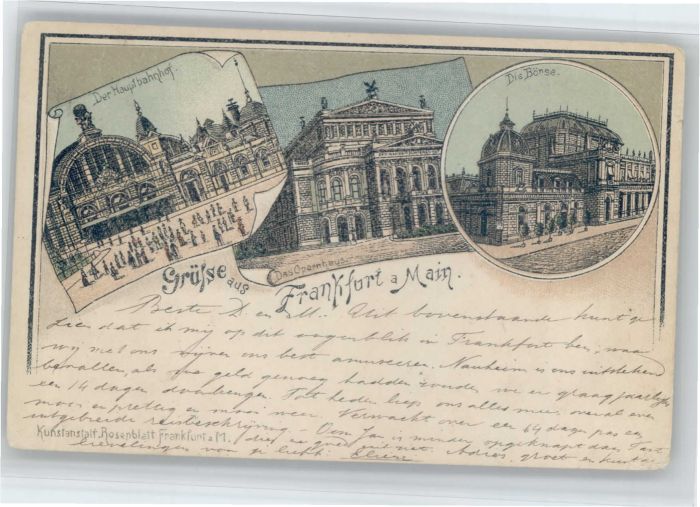 Der Hauptbahnhof.
Das Opernhaus.
Die Börse.
Grüße aus
Frankfurt a Main.
Beste D. en M.. Uit bovenstaande kunt ge
zien dat ik mij op dit oogenblik in Frankfort ben, waar
wij met ons vijven ons best amuseeren. Nauheim is ons uitstekend
bevallen, als we geld genoeg hadden zouden we er graag jaarlijks
een 14 dagen doorbrengen. Tot heden liep ons alles mee, overal even
mooi en prettig en mooi weer. Verwacht over een 14 dagen pas een
uitgebreide reisbeschrijving. — Oom Jan is minder opgeknapt dan Tante
Adres, groet en kust
lievelingen van je
Kunstanstalt Rosenblatt Frankfurt a M.